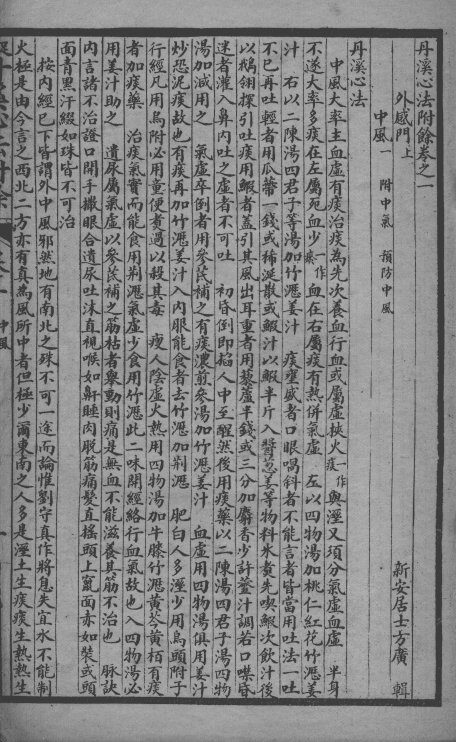 丹溪心法附餘卷之一
外感門上 新安居士方廣 輯
中風一 附中氣 預防中風
丹溪心法
中風大率主血虛有痰治痰為先次養血行血或屬虛挾火一作痰與溼又須分氣虛血虛 半身
不遂大率多痰在左屬死血少一作瘀血在右屬痰有熱併氣虛 左以四物湯加桃仁紅花竹瀝姜
汁 右以二陳湯四君子等湯加竹瀝姜汁 痰壅盛者口眼喎斜者不能言者皆當用吐法一吐
不已再吐輕者用瓜蔕一錢或稀涎散或蝦汁以蝦半斤入醬葱姜等物料水煮先喫蝦次飲汁後
以鵝翎探引吐痰用蝦者蓋引其風出耳重者用藜蘆半錢或三分加麝香少許虀汁調若口噤昏
迷者灌入鼻內吐之虛者不可吐 初昏倒即掐人中至醒然後用痰藥以二陳湯四君子湯四物
湯加減用之 氣虛卒倒者用參芪補之有痰濃煎參湯加竹瀝姜汁 血虛用四物湯俱用姜汁
炒恐泥痰故也有痰再加竹瀝姜汁入內服能食者去竹瀝加荆瀝 肥白人多溼少用烏頭附子
行經凡用烏附必用童便煑過以殺其毒 瘦人陰虛火熱用四物湯加牛膝竹瀝黃芩黃栢有痰
者加痰藥 治痰氣實而能食用荆瀝氣虛少食用竹瀝此二味開經絡行血氣故也入四物湯必
用姜汁助之 遺尿屬氣虛以參芪補之筋枯者舉動則痛是無血不能滋養其筋不治也 脉訣
內言諸不治證口開手撒眼合遺尿吐沫直視喉如鼾睡肉脫筋痛髮直搖頭上竄面赤如裝或頭
面青黑汗綴如珠皆不可治
按內經已下皆謂外中風邪然地有南北之殊不可一途而論惟劉守真作將息失宜水不能制
火極是由今言之西北二方亦有真為風所中者但極少爾東南之人多是溼土生痰痰生熱熱生